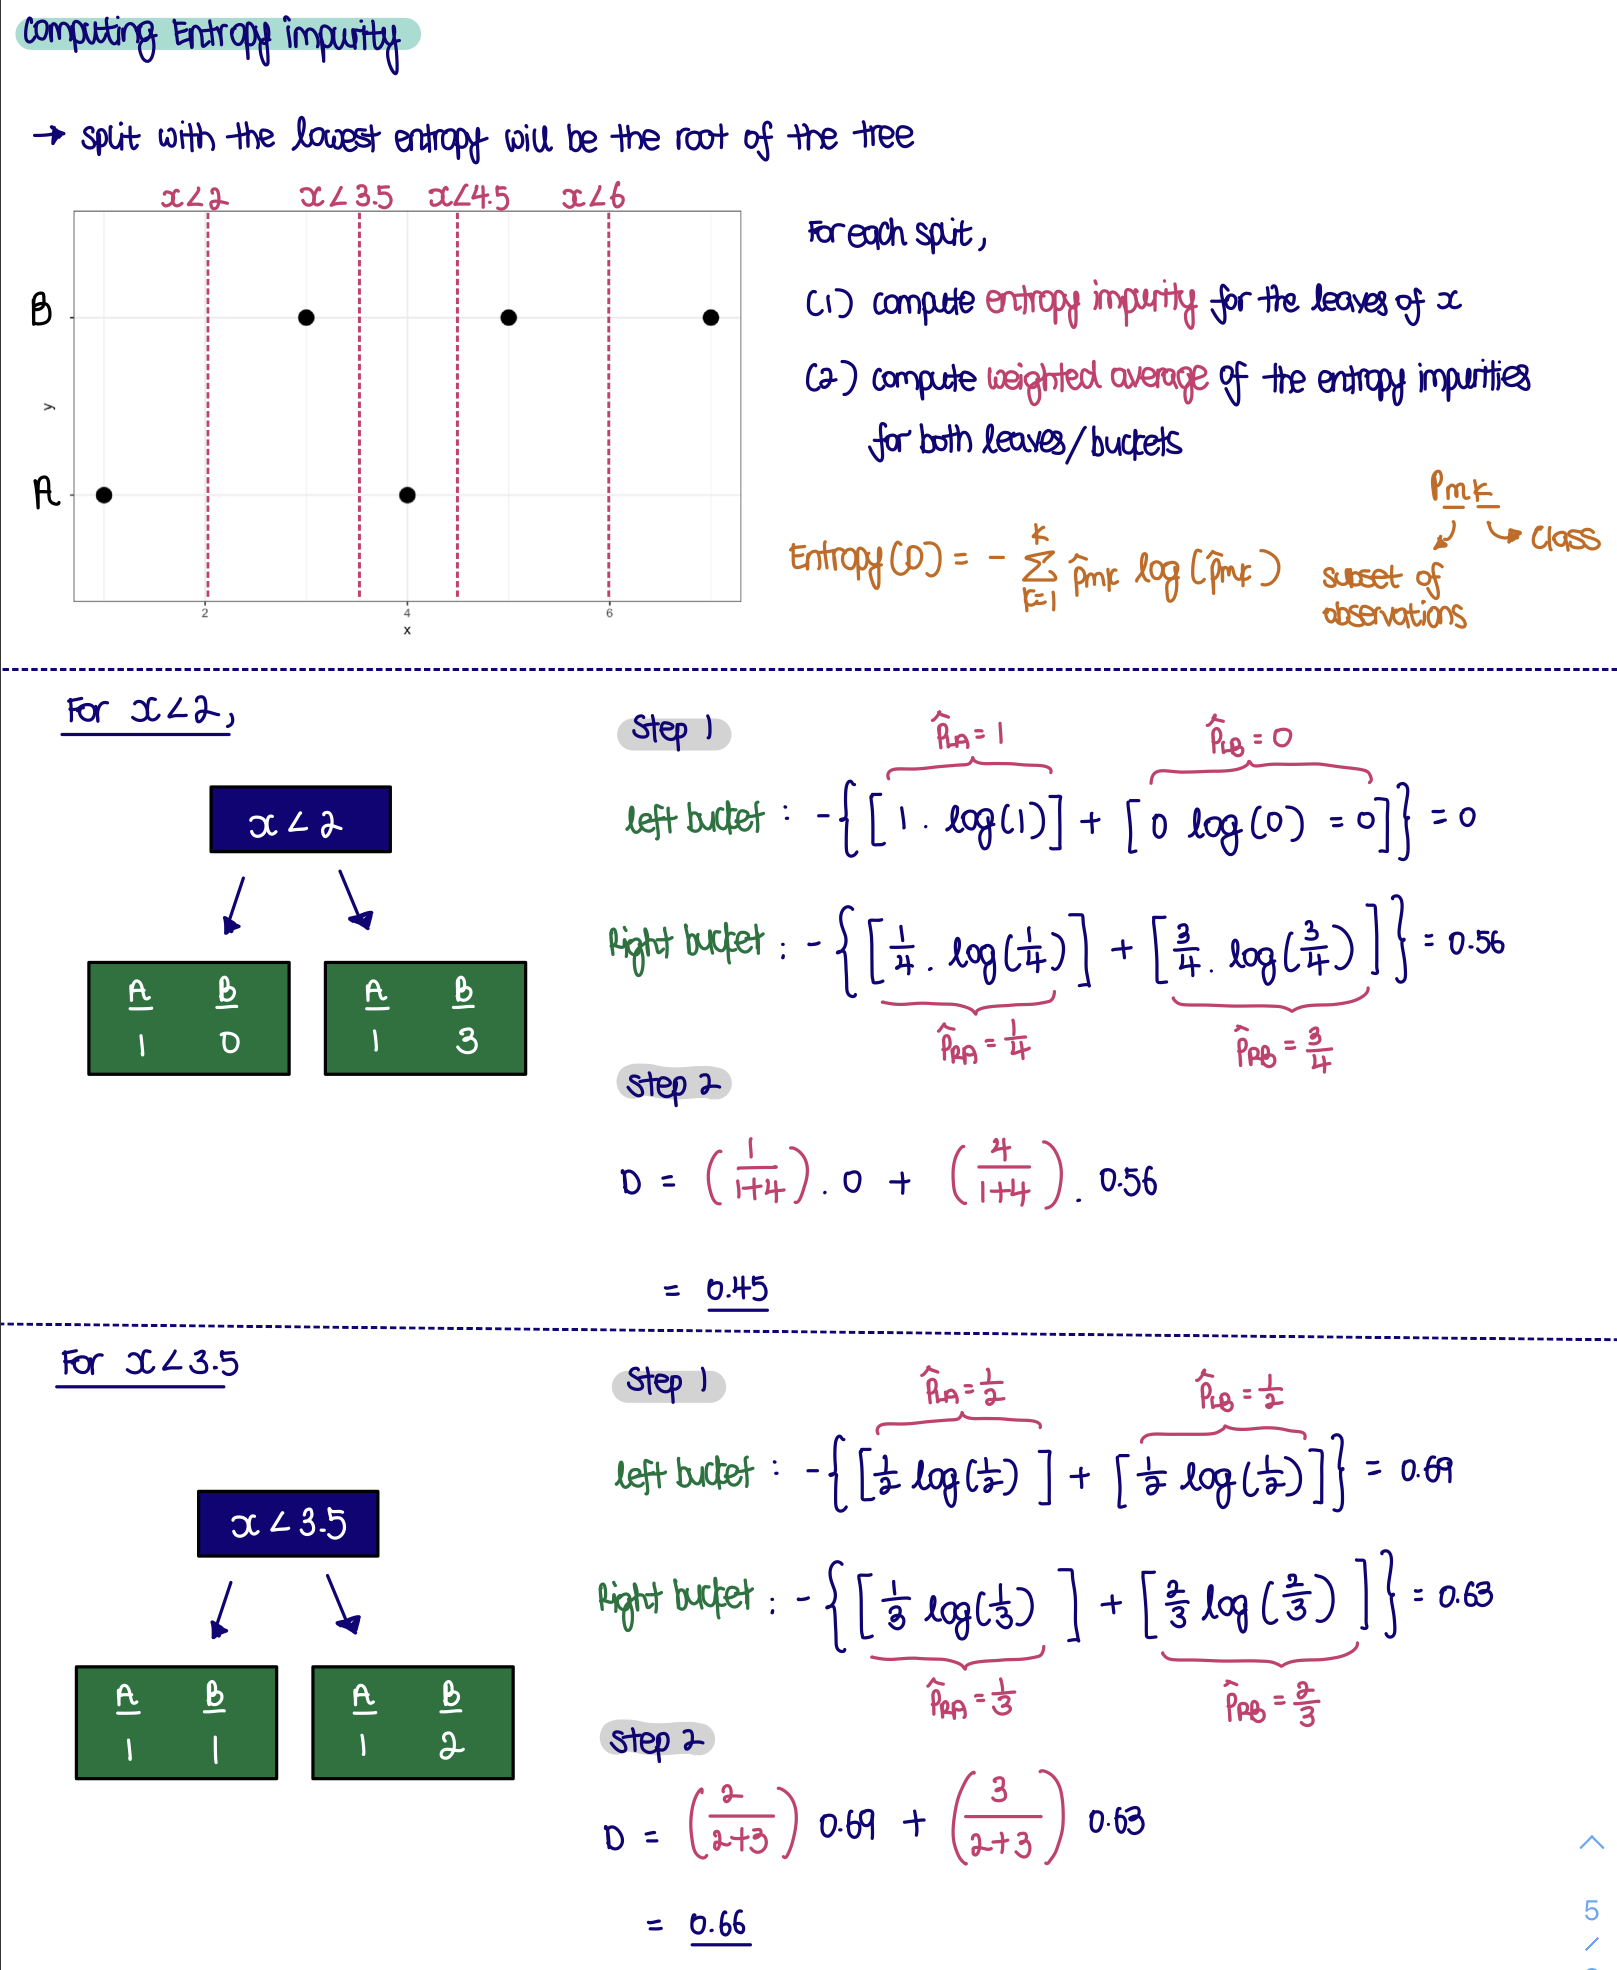 Computing Entropy impurity
→ split with the lowest entropy will be the root of the tree
x<2 x<3.5 x<4.5 x<6
B
y
A
2 4 6
x
For each split,
(1) compute entropy impurity for the leaves of x
(2) compute weighted average of the entropy impurities
for both leaves/buckets
Pmk
→ class
subset of
observations
Entropy(D) = - Σ_{k=1}^{K} p̂mk log(p̂mk)
For x<2,
x<2
A B
1 0
A B
1 3
Step 1
p̂LA = 1 p̂LB = 0
left bucket : -{[1 . log(1)] + [0 log(0) = 0]} = 0
Right bucket : -{[1/4 . log(1/4)] + [3/4 . log(3/4)]} = 0.56
p̂RA = 1/4 p̂RB = 3/4
Step 2
D = (1/(1+4)) . 0 + (4/(1+4)) . 0.56
= 0.45
For x<3.5
x<3.5
A B
1 1
A B
1 2
Step 1
p̂LA = 1/2 p̂LB = 1/2
left bucket : -{[1/2 log(1/2)] + [1/2 log(1/2)]} = 0.69
Right bucket : -{[1/3 log(1/3)] + [2/3 log(2/3)]} = 0.63
p̂RA = 1/3 p̂RB = 2/3
Step 2
D = (2/(2+3)) 0.69 + (3/(2+3)) 0.63
= 0.66
5
/